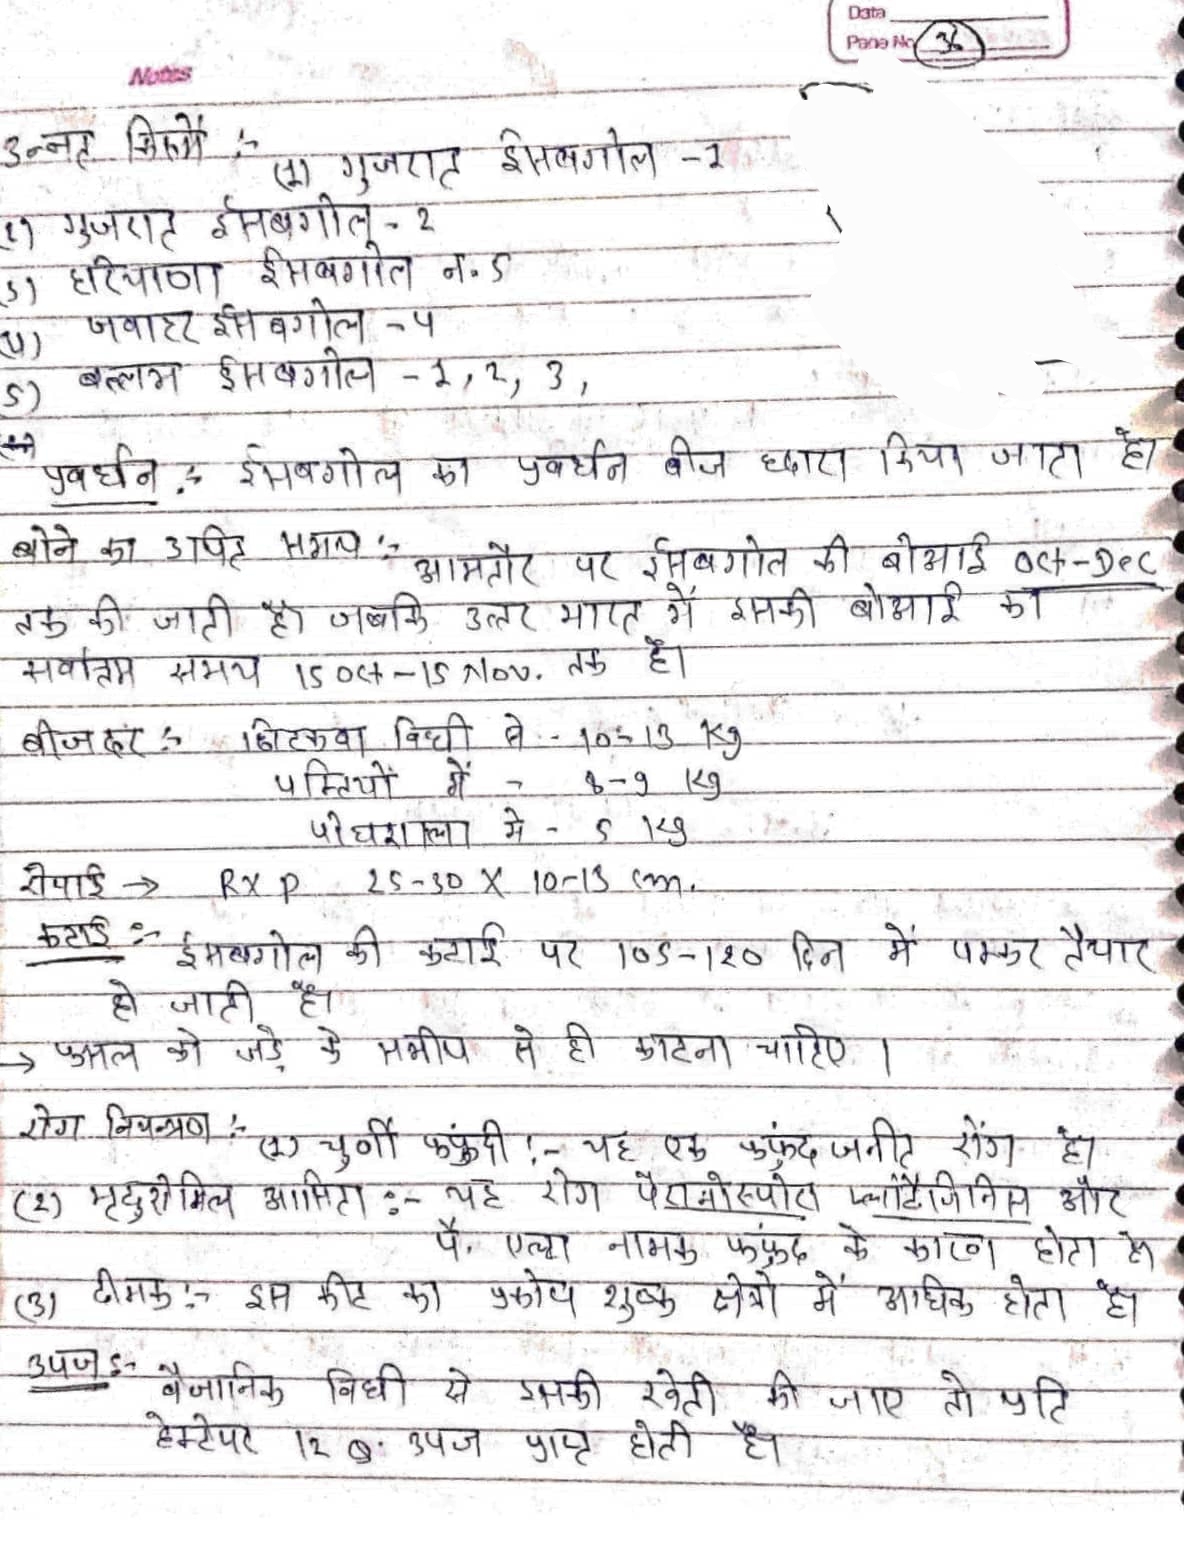 Data
Page No 36
Notes
उन्नत किस्में :-
(1) गुजरात ईसबगोल - 1
(2) गुजरात ईसबगोल - 2
(3) हरियाणा ईसबगोल न. 5
(4) जवाहर ईसबगोल - 4
5) बल्लभ ईसबगोल - 1, 2, 3,
प्रवर्धन :- ईसबगोल का प्रवर्धन बीज द्वारा किया जाता है।
बोने का उचित समय :- आमतौर पर ईसबगोल की बोआई Oct-Dec
तक की जाती है। जबकि उत्तर भारत में इसकी बोआई का
सर्वोत्तम समय 15 Oct - 15 Nov. तक है।
बीज दर :- छिटकवा विधी से - 10-13 Kg
पक्तियों में - 8-9 Kg
पौधशाला मे - 5 Kg
रोपाई → R x P 25-30 X 10-13 cm.
कटाई :- ईसबगोल की कटाई पर 105-120 दिन में पककर तैयार
हो जाती है।
→ फसल को जड़े के समीप से ही काटना चाहिए ।
रोग नियन्त्रण :- (1) चुर्णी फफुंदी :- यह एक फफुंद जनीत रोंग है।
(2) मृदुरोमिल आसिता :- यह रोग पैरानोस्पोरा प्लांटैजिनिस और
पै. एल्टा नामक फफुंद के कारण होता है।
(3) दीमक :- इस कीट का प्रकोप शुष्क क्षेत्रो में अधिक होता है।
उपज :- वैज्ञानिक विधी से इसकी खेती की जाए तो प्रति
हेक्टेयर 12 Q. उपज प्राप्त होती है।